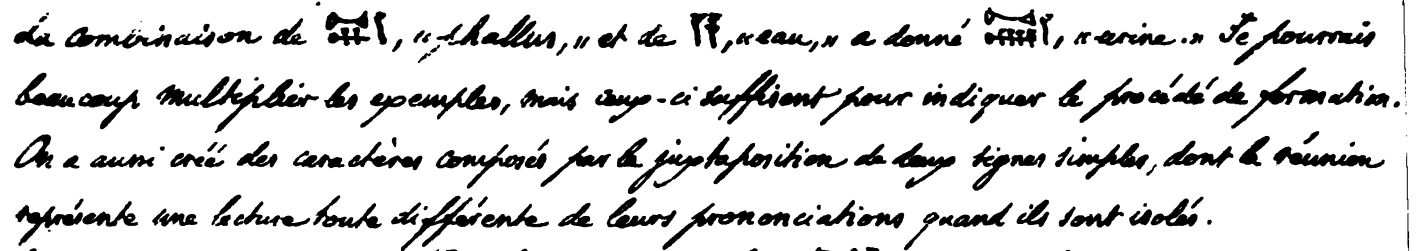 La combinaison de , « phallus, » et de , « eau, » a donné , « urine. » Je pourrais
beaucoup multiplier les exemples, mais ceux-ci suffisent pour indiquer le procédé de formation.
On a aussi créé des caractères composés par la juxtaposition de deux signes simples, dont la réunion
représente une lecture toute différente de leurs prononciations quand ils sont isolés.